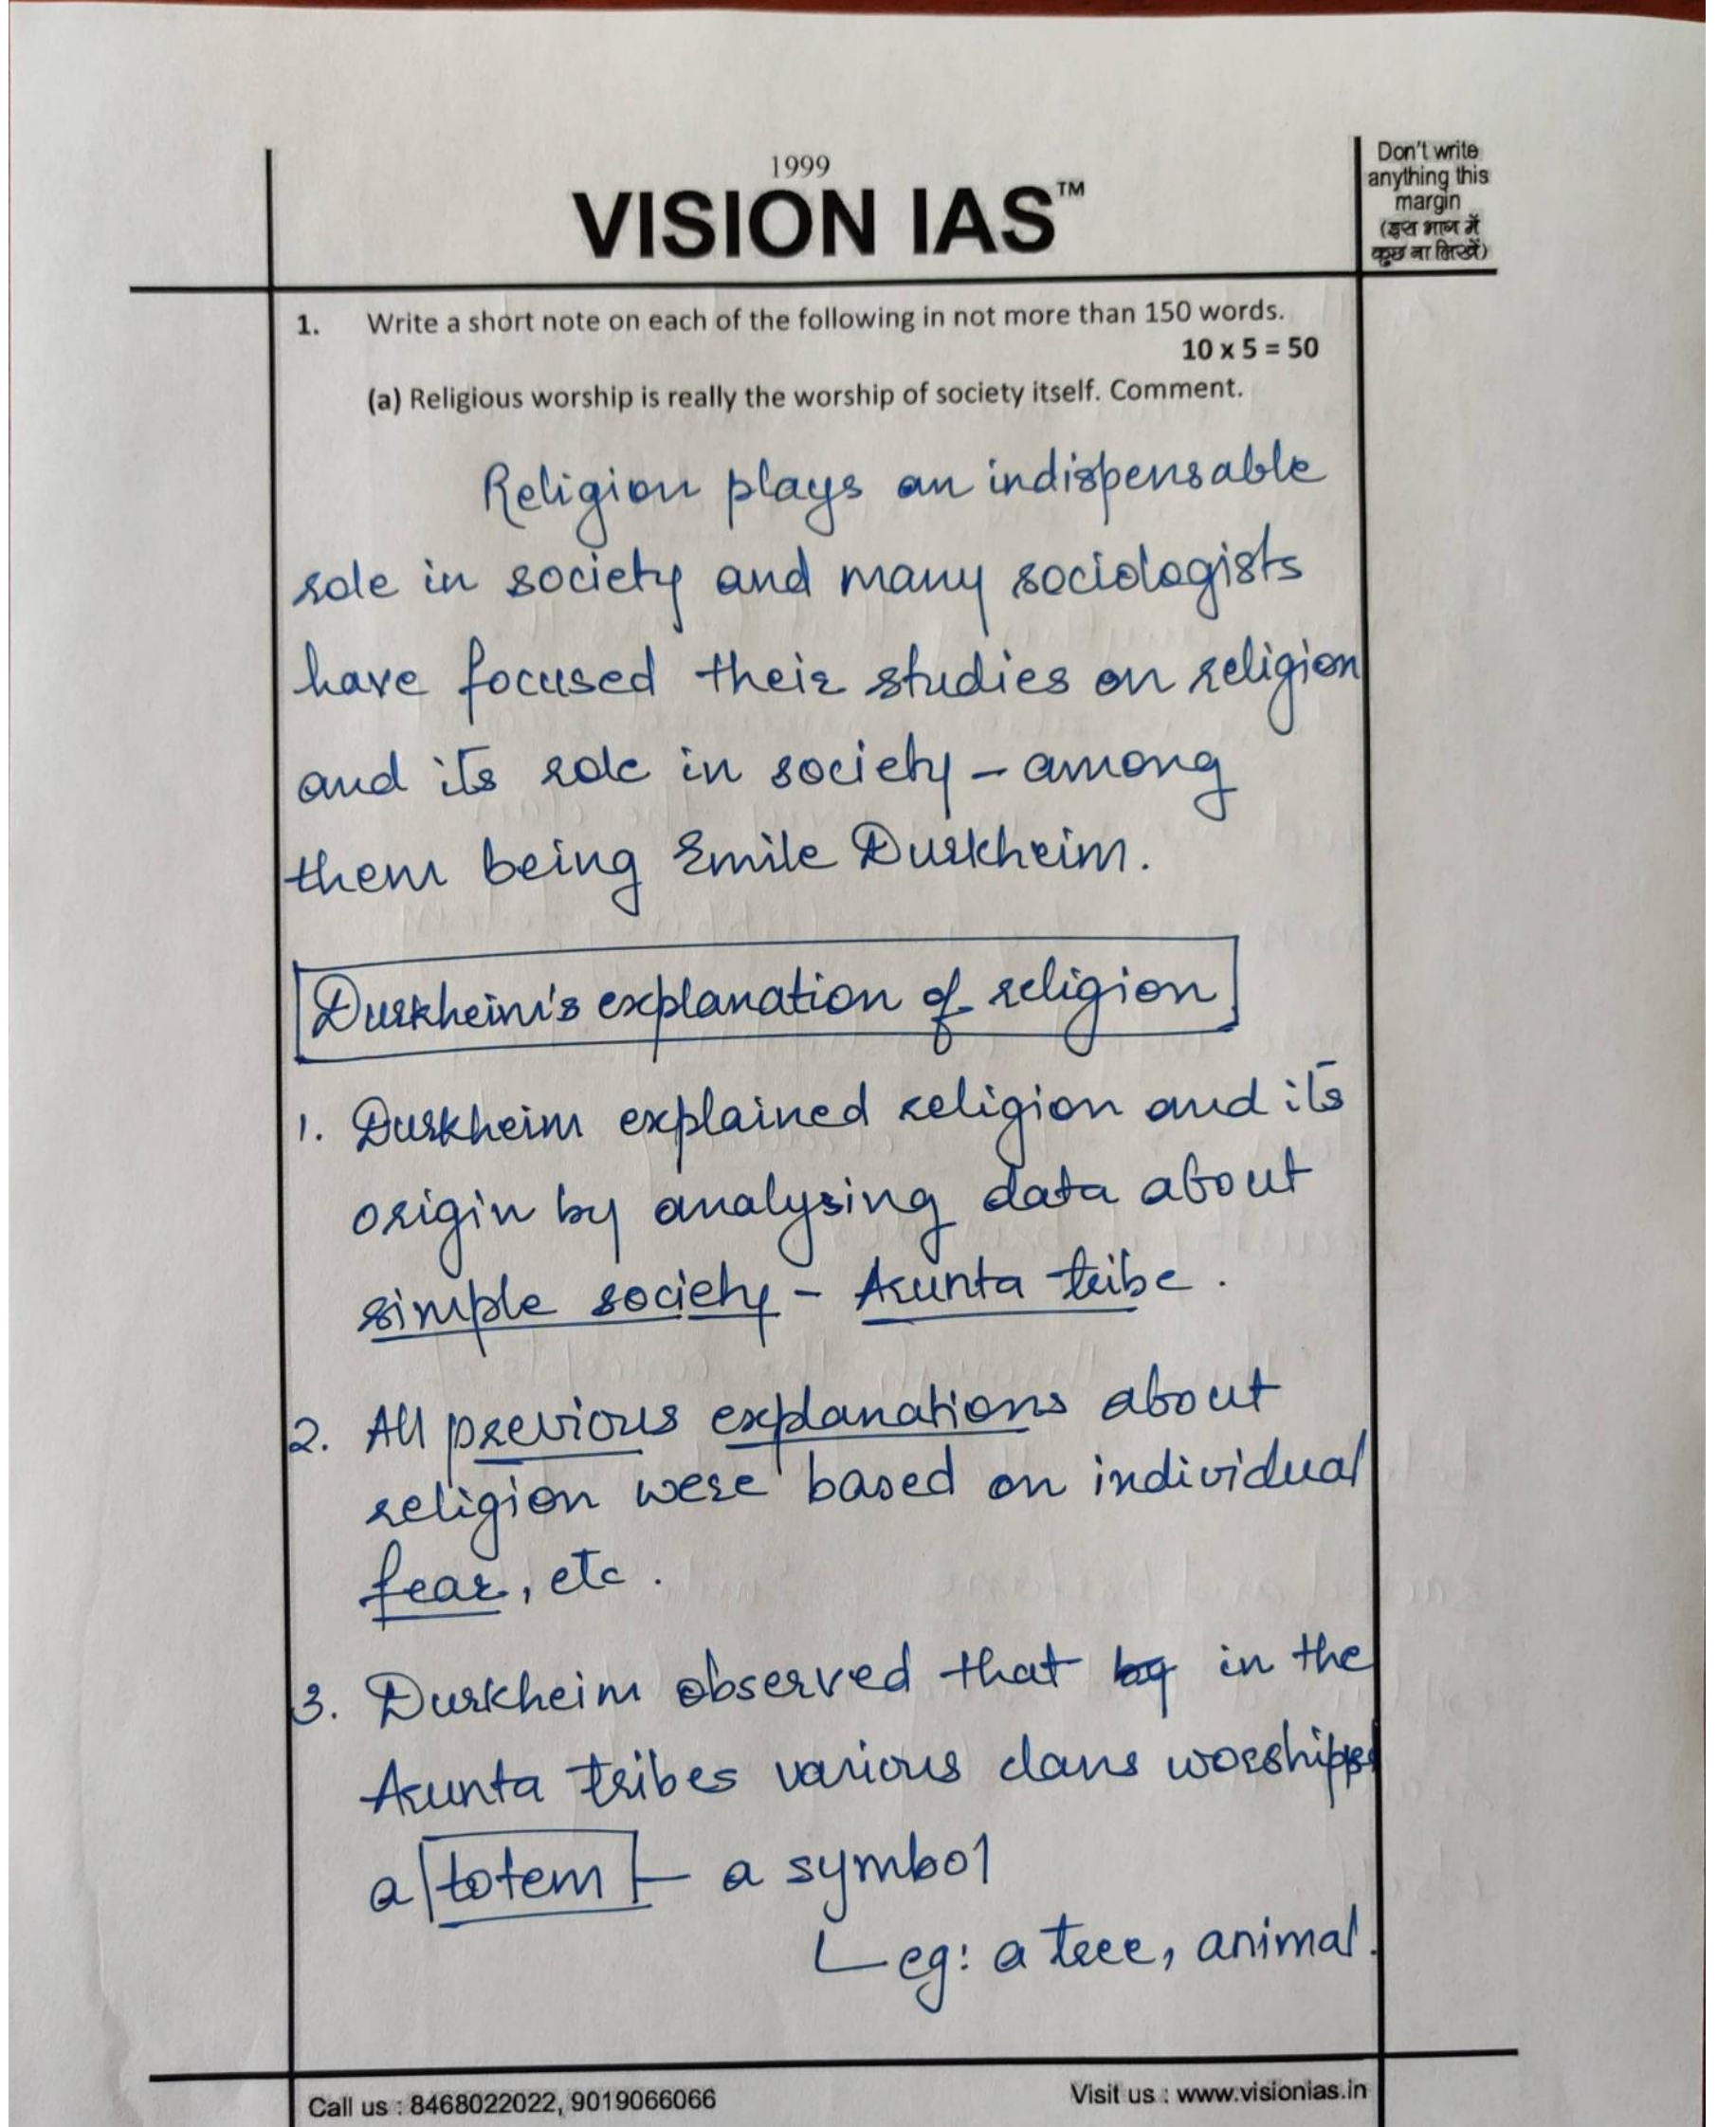 1999
VISION IAS™
Don't write
anything this
margin
(इस भाग में
कुछ ना लिखें)
1. Write a short note on each of the following in not more than 150 words.
10 x 5 = 50
(a) Religious worship is really the worship of society itself. Comment.
Religion plays an indispensable
role in society and many sociologists
have focused their studies on religion
and its role in society – among
them being Emile Durkheim.
Durkheim's explanation of religion
1. Durkheim explained religion and its
origin by analysing data about
simple society – Arunta tribe.
2. All previous explanations about
religion were based on individual
fear, etc.
3. Durkheim observed that by in the
Arunta tribes various clans worshipped
a totem – a symbol
eg: a tree, animal.
Call us : 8468022022, 9019066066
Visit us : www.visionias.in